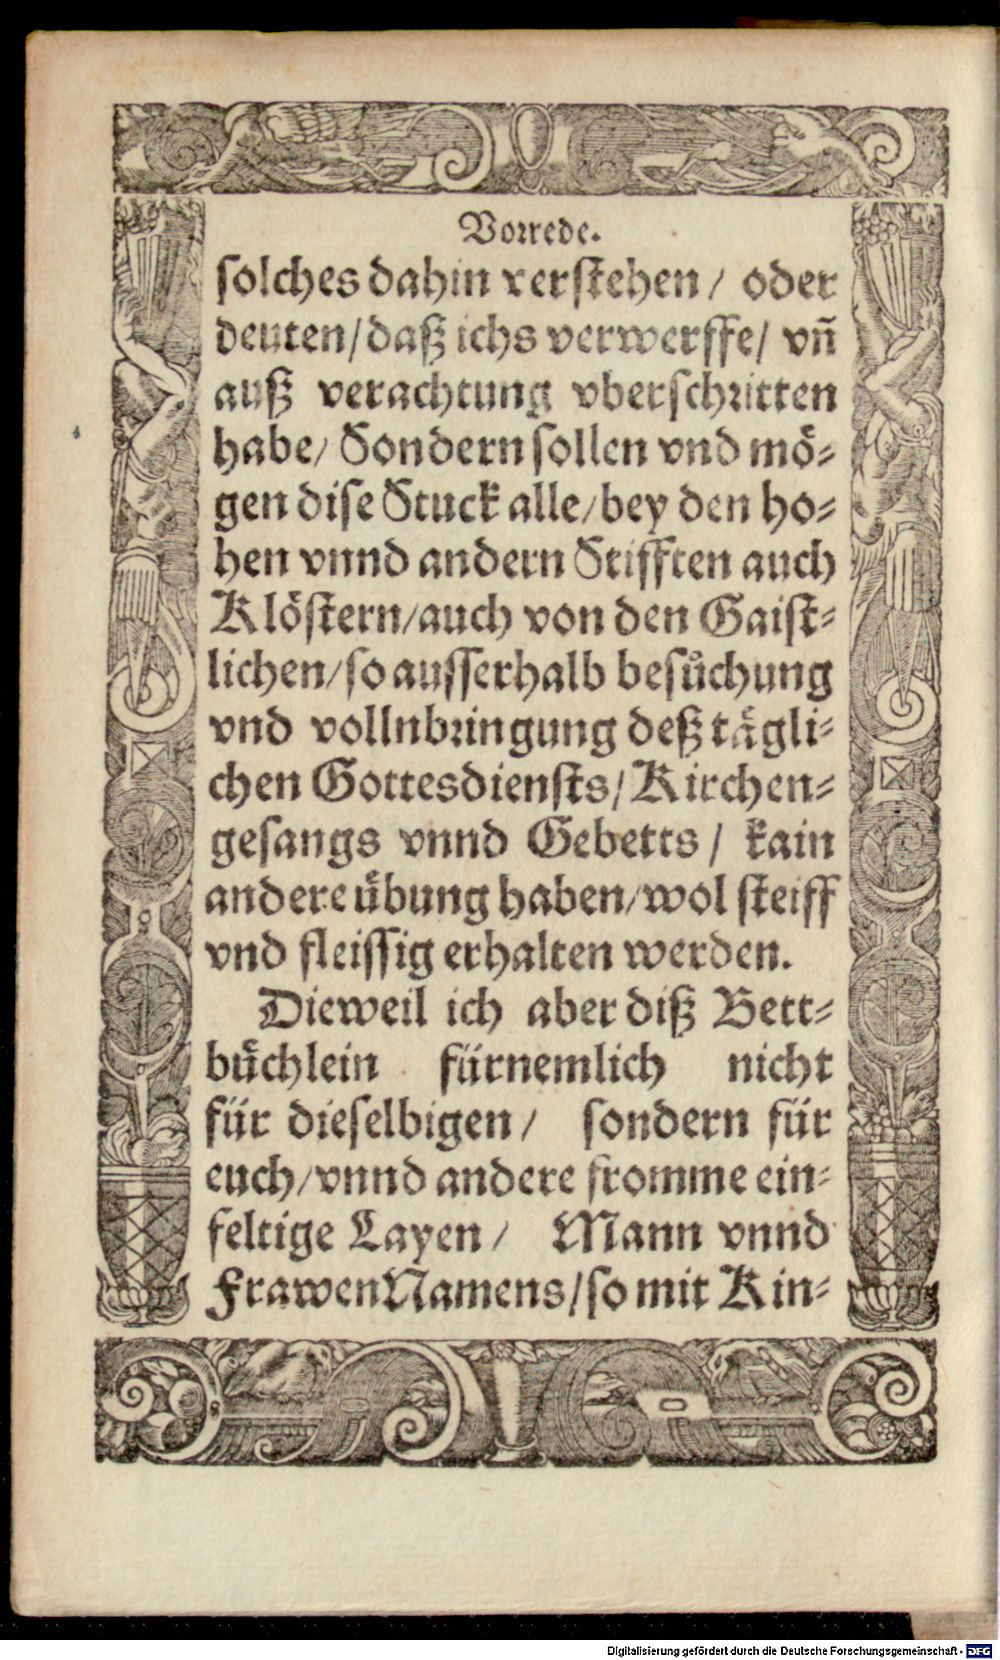 Vorrede.
solches dahin verstehen / oder
deuten / daß ichs verwerffe / vñ
auß verachtung vberschritten
habe / Sondern sollen vnd mö-
gen dise Stuck alle / bey den ho-
hen vnnd andern Stifften auch
Klöstern / auch von den Gaist-
lichen / so ausserhalb besůchung
vnd vollnbringung deß tägli-
chen Gottesdiensts / Kirchen-
gesangs vnnd Gebetts / kain
andere übung haben / wol steiff
vnd fleissig erhalten werden.
Dieweil ich aber diß Bett-
büchlein fürnemlich nicht
für dieselbigen / sondern für
euch / vnnd andere fromme ein-
feltige Layen / Mann vnnd
Frawen Namens / so mit Kin-
Digitalisierung gefördert durch die Deutsche Forschungsgemeinschaft - DFG